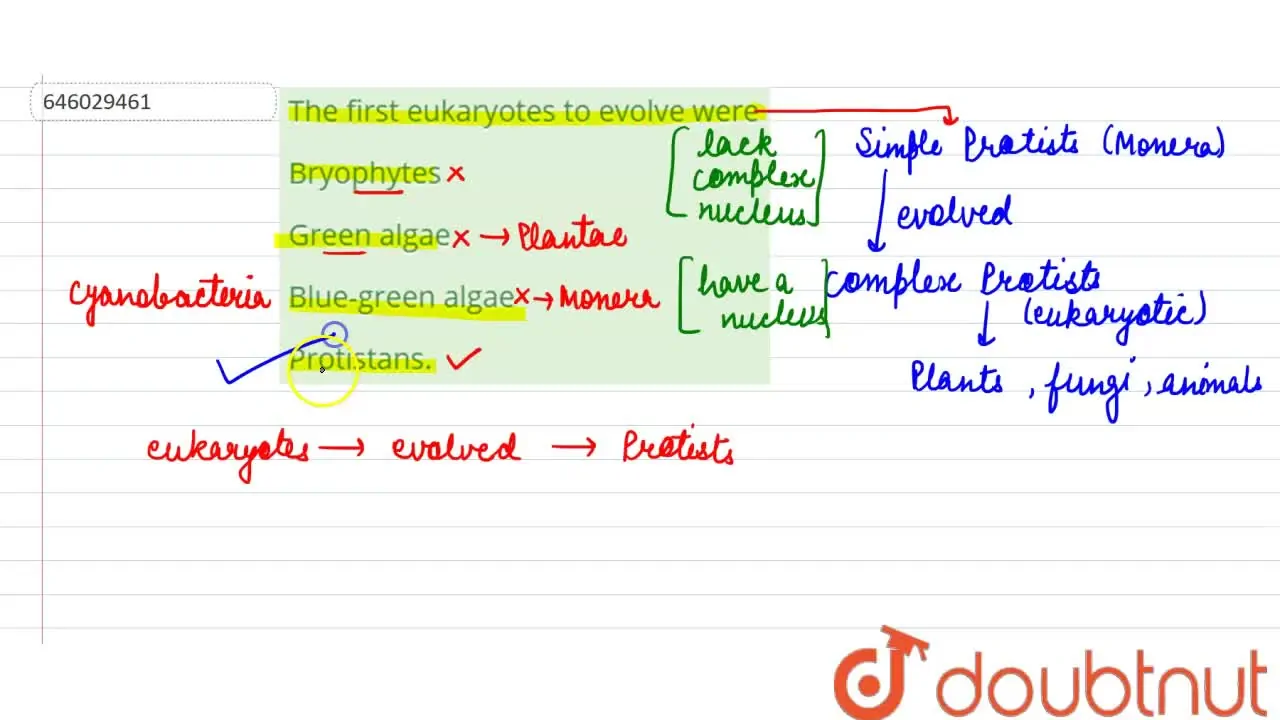 646029461
The first eukaryotes to evolve were
Bryophytes x
Green algae x → Plantae
cyanobacteria Blue-green algae x → Monera
Protistans.
[lack
complex
nucleus]
Simple Protists (Monera)
evolved
[have a
nucleus]
complex Protists
(eukaryotic)
Plants, fungi, animals
eukaryotes → evolved → Protists
doubtnut